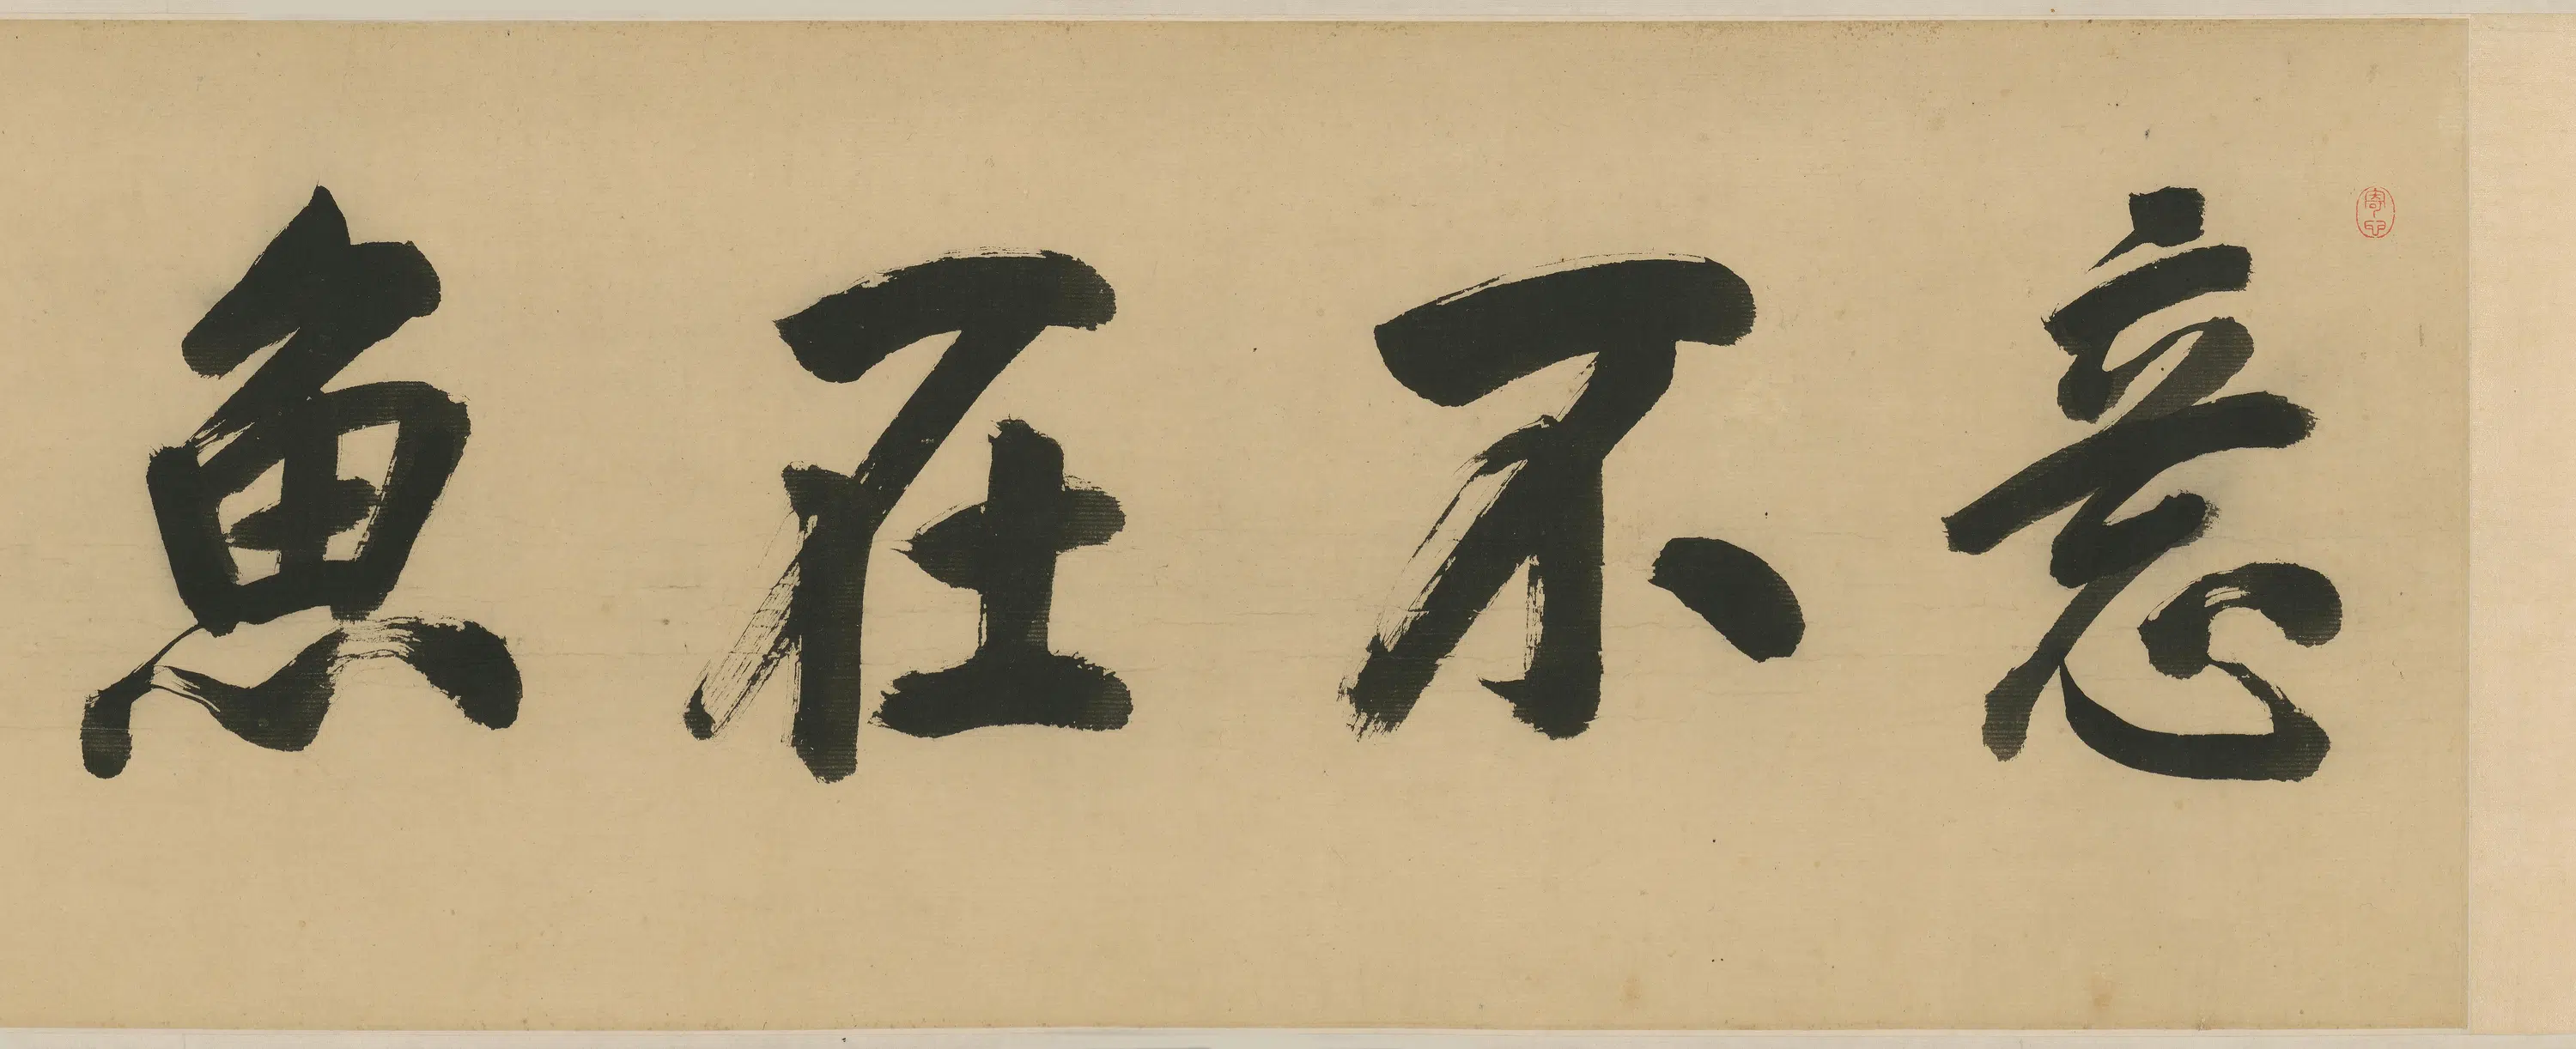 意不在魚